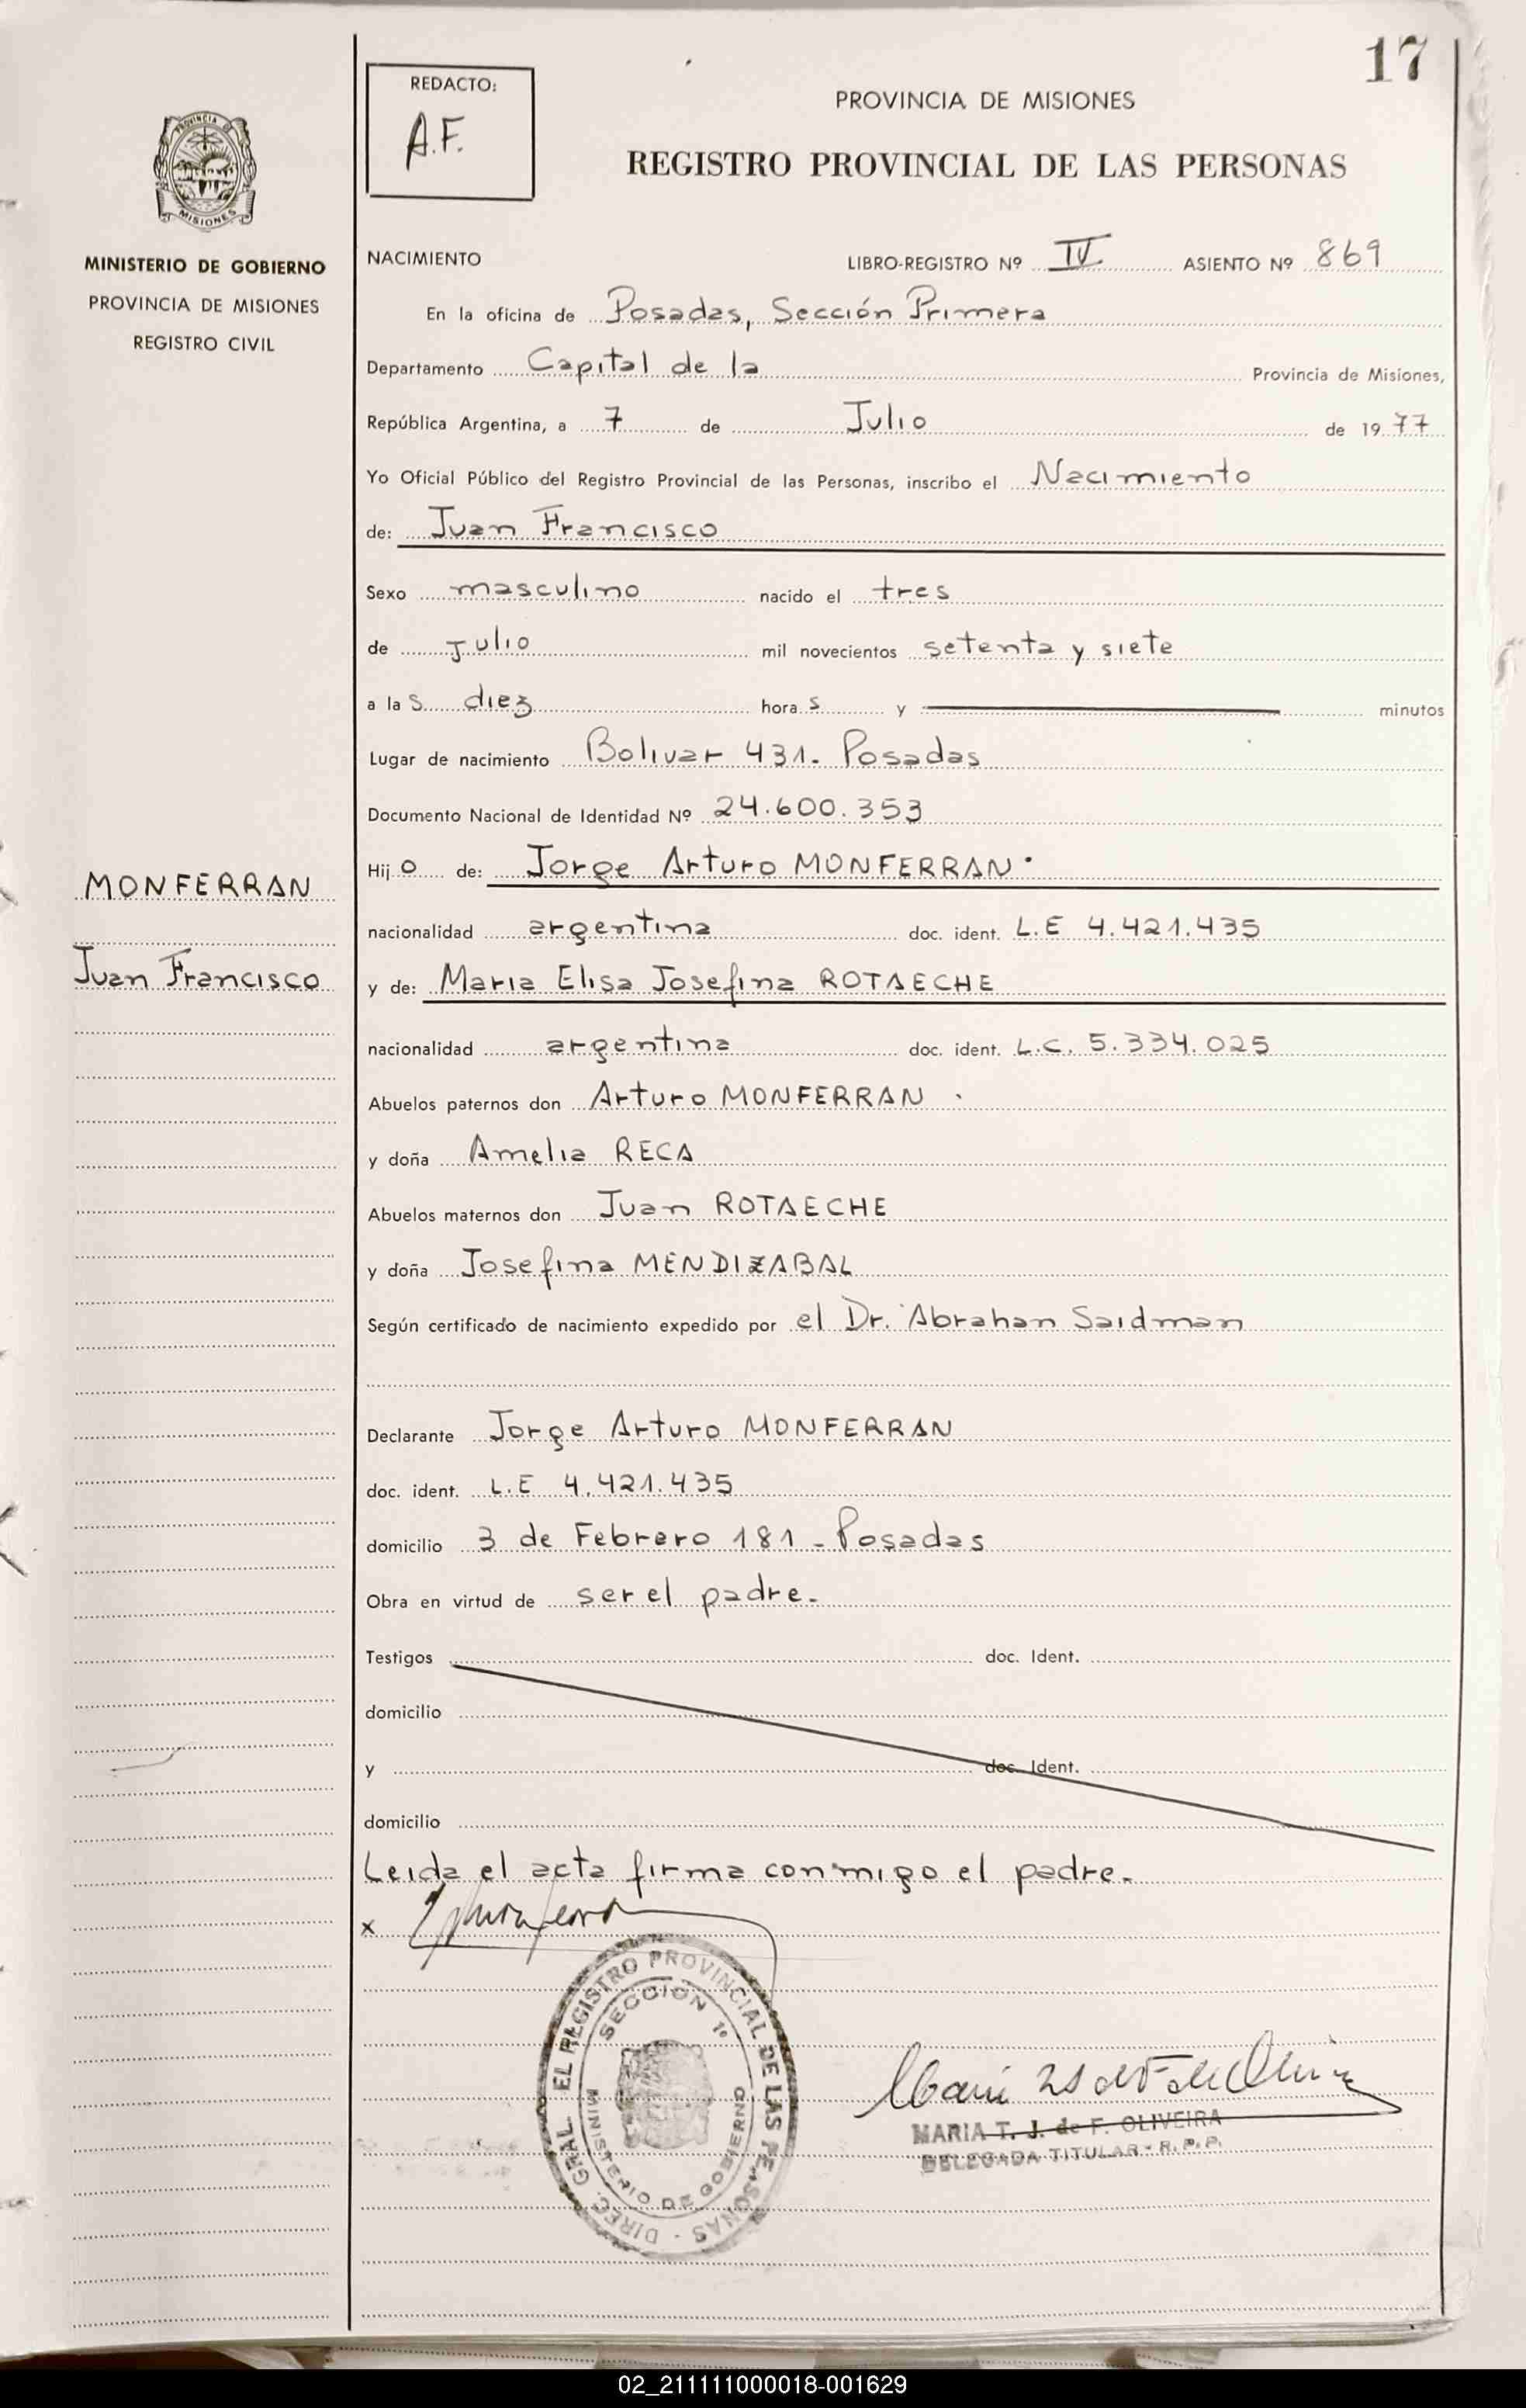 17
REDACTO:
A.F.
PROVINCIA DE MISIONES
REGISTRO PROVINCIAL DE LAS PERSONAS
PROVINCIA DE
MISIONES
MINISTERIO DE GOBIERNO
PROVINCIA DE MISIONES
REGISTRO CIVIL
MONFERRAN
Juan Francisco
NACIMIENTO LIBRO-REGISTRO Nº IV ASIENTO Nº 869
En la oficina de Posadas, Sección Primera
Departamento Capital de la Provincia de Misiones,
República Argentina, a 7 de Julio de 1977
Yo Oficial Público del Registro Provincial de las Personas, inscribo el Nacimiento
de: Juan Francisco
Sexo masculino nacido el tres
de julio mil novecientos setenta y siete
a las diez horas y minutos
Lugar de nacimiento Bolivar 431. Posadas
Documento Nacional de Identidad Nº 24.600.353
Hijo de: Jorge Arturo MONFERRAN.
nacionalidad argentina doc. ident. L.E 4.421.435
y de: Maria Elisa Josefina ROTAECHE
nacionalidad argentina doc. ident. L.C. 5.334.025
Abuelos paternos don Arturo MONFERRAN.
y doña Amelia RECA
Abuelos maternos don Juan ROTAECHE
y doña Josefina MENDIZABAL
Según certificado de nacimiento expedido por el Dr. Abrahan Saidman
Declarante Jorge Arturo MONFERRAN
doc. ident. L.E 4.421.435
domicilio 3 de Febrero 181 - Posadas
Obra en virtud de ser el padre.
Testigos doc. Ident.
domicilio
y doc. Ident.
domicilio
Leida el acta firma conmigo el padre.
x
DIREC. GRAL. EL REGISTRO PROVINCIAL DE LAS PERSONAS -
SECCION 1º
MINISTERIO DE GOBIERNO
MARIA T. J. de F. OLIVEIRA
DELEGADA TITULAR - R. P. P.
02_211111000018-001629